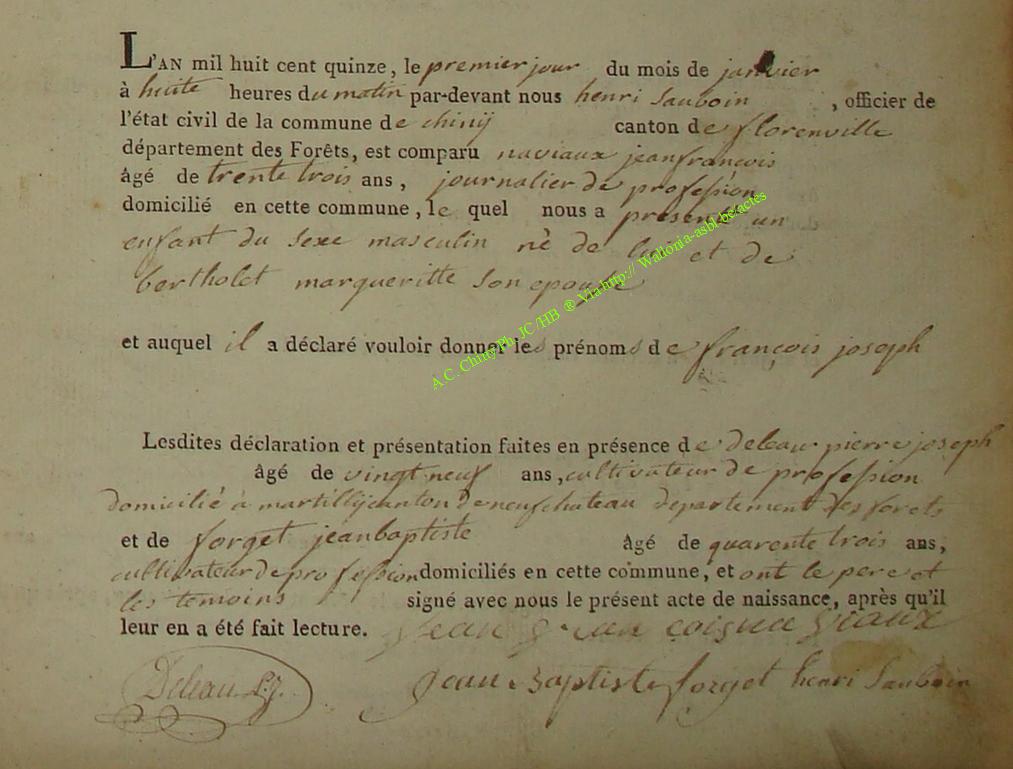 L'AN mil huit cent quinze, le premier jour du mois de janvier
à huite heures du matin par-devant nous henri Sauboin , officier de
l'état civil de la commune de chinÿ canton de florenville
département des Forêts, est comparu naviaux jean françois
âgé de trente trois ans, journalier de profession
domicilié en cette commune, le quel nous a présenté un
enfant du sexe masculin nè de lui et de
bertholet margueritte son epouse
et auquel il a déclaré vouloir donner les prénoms de françois joseph
Lesdites déclaration et présentation faites en présence de deleau pierre joseph
âgé de vingt neuf ans, cultivateur de profession
domicilié à martillÿ canton de neufchateau departement des forets
et de forget jean baptiste âgé de quarente trois ans,
cultivateur de profession domiciliés en cette commune, et ont le pere et
les temoins signé avec nous le présent acte de naissance, après qu'il
leur en a été fait lecture. Jean francois naviaux
Deleau P.J. Jean Baptiste forget henri Sauboin
A.C. Chiny Ph. JC/HB ® Via http:// Wallonia-asbl-be/actes